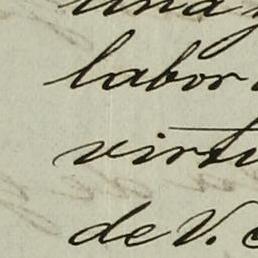 una
labor
virtu
de V.